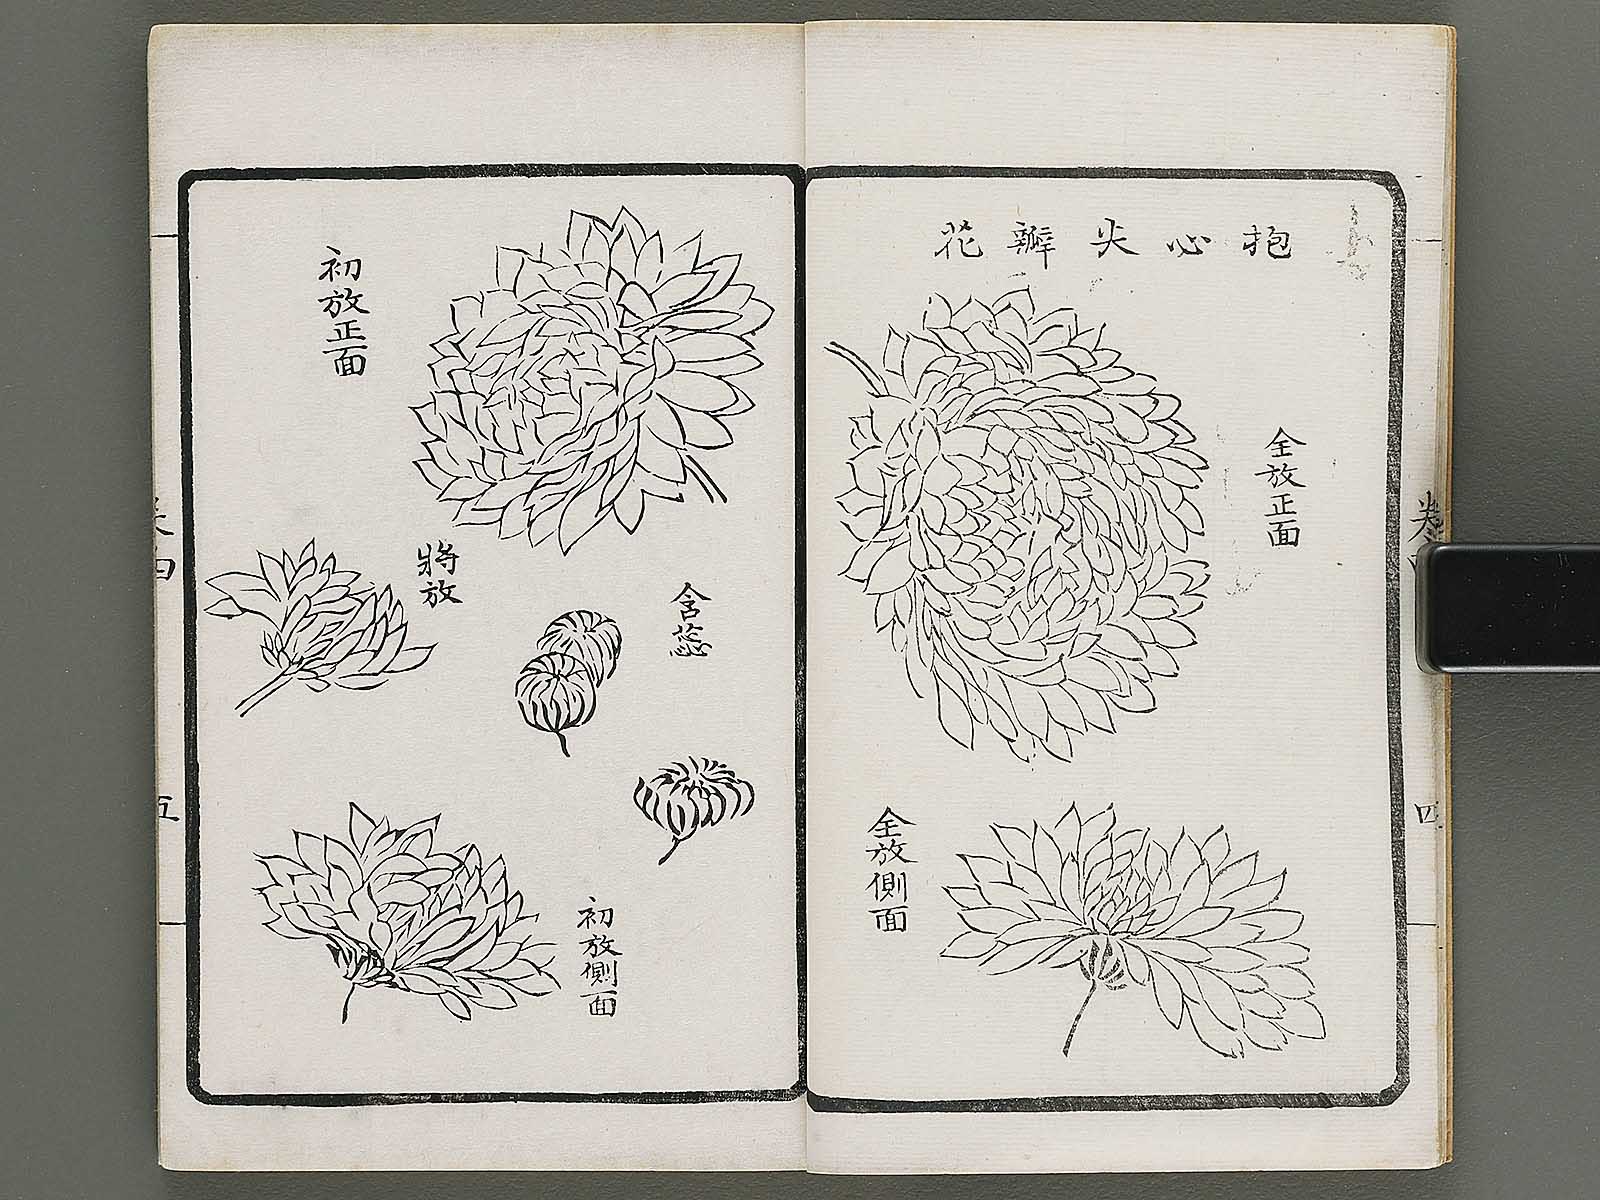 抱心尖瓣花
全放正面
全放側面
卷四
四
初放正面
含蕊
將放
初放側面
五